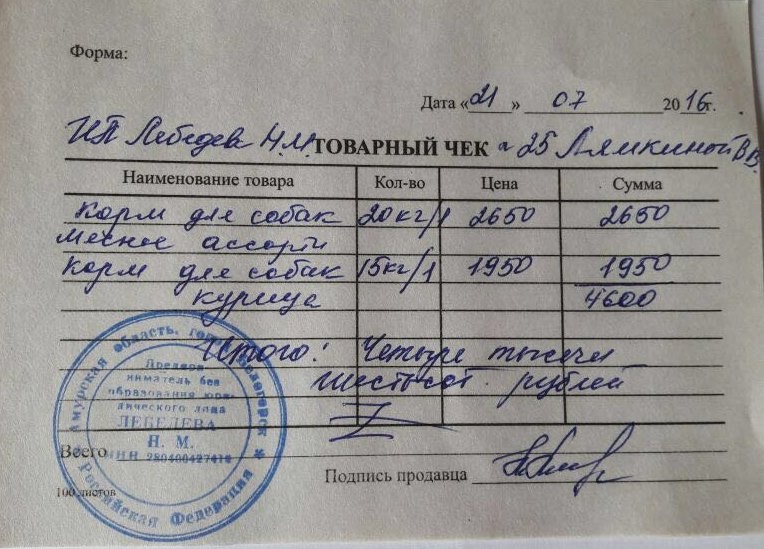 Форма:
Дата «21» 07 2016г.
ИП Лебедева Н.М. ТОВАРНЫЙ ЧЕК № 25 Лямкиной В.В.
Наименование товара Кол-во Цена Сумма
Корм для собак 20кг/1 2650 2650
мясное ассорти
Корм для собак 15кг/1 1950 1950
курица 4600
Итого: Четыре тысячи
шестьсот рублей
Амурская область, город Белогорск * Российская Федерация *
Предпри-
ниматель без
образования юри-
дического лица
ЛЕБЕДЕВА
Н. М.
ИНН 280400427414
Всего
Подпись продавца
100 листов